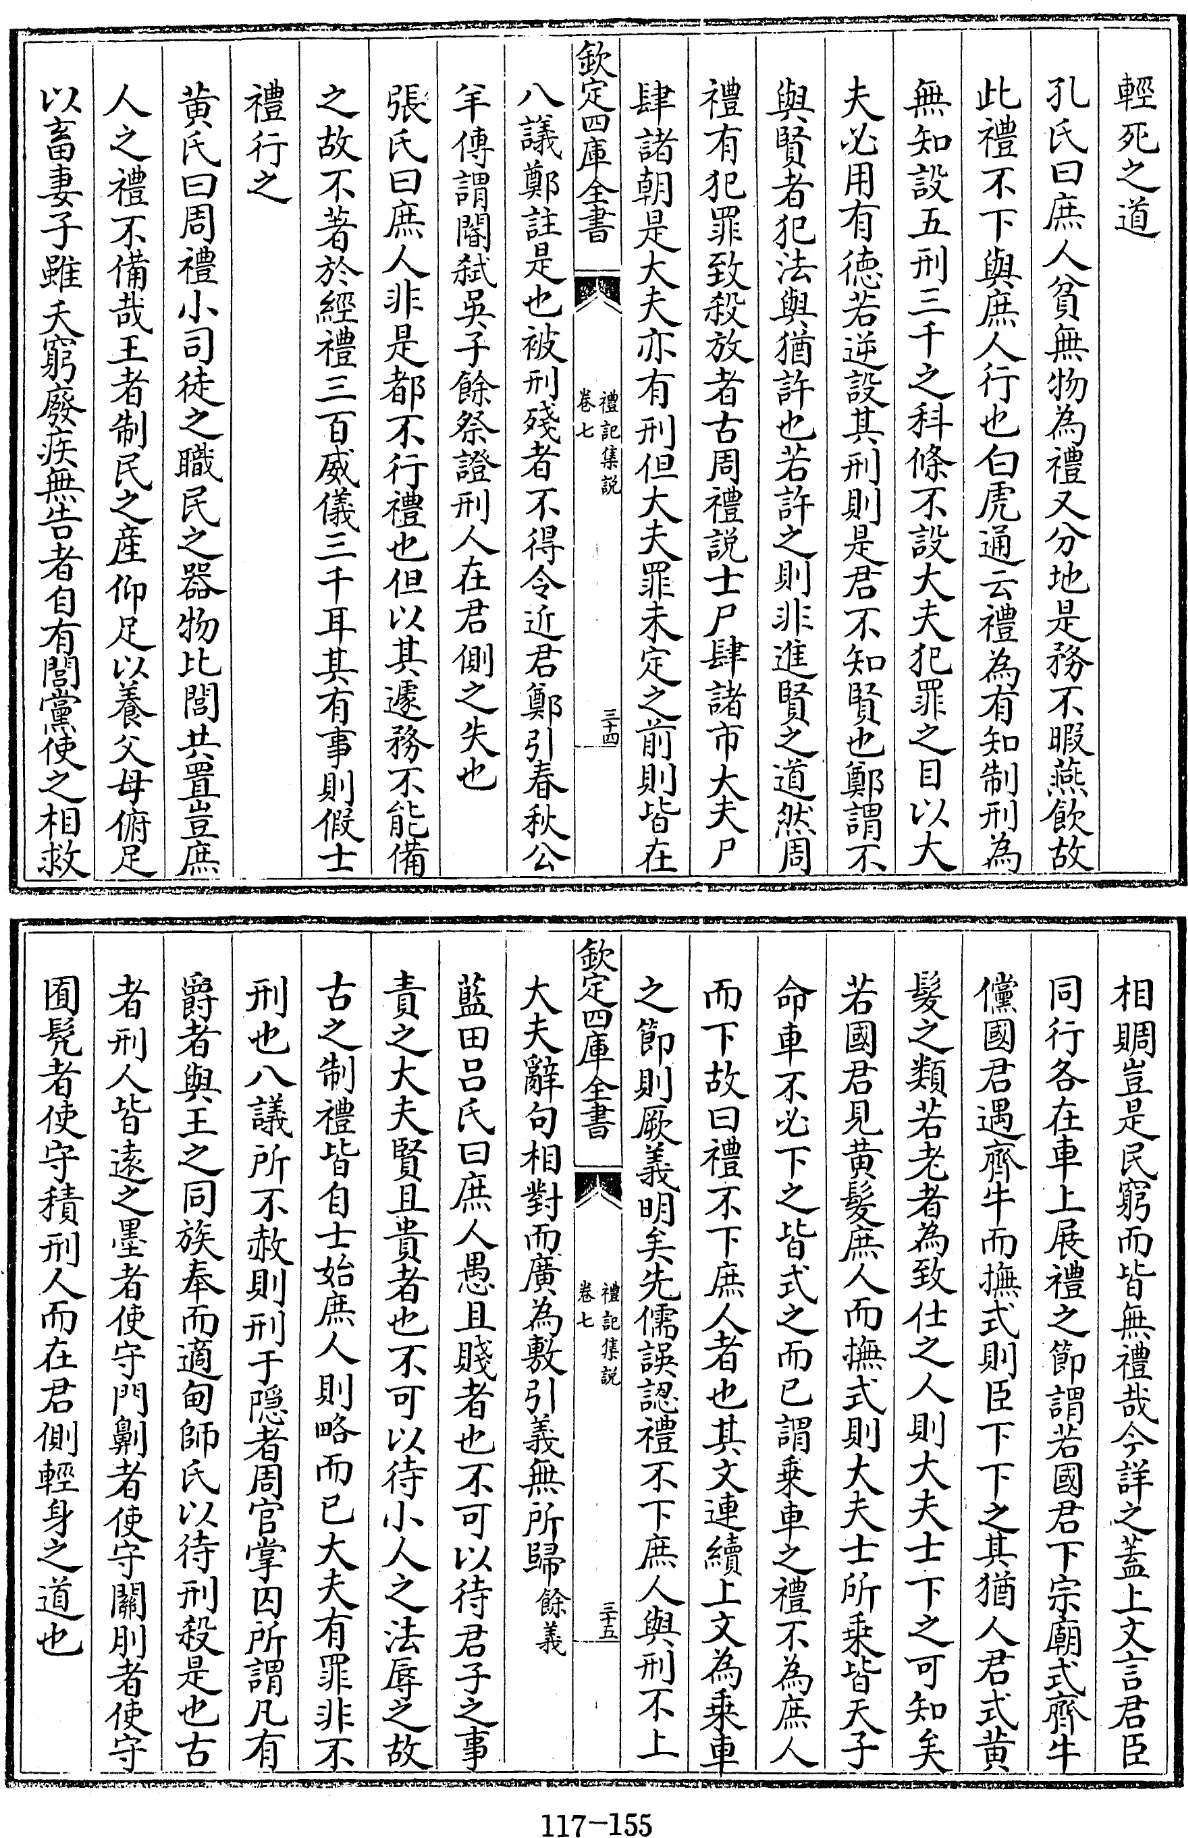 輕死之道
孔氏曰庶人貧無物為禮又分地是務不暇燕飲故
此禮不下與庶人行也白虎通云禮為有知制刑為
無知設五刑三千之科條不設大夫犯罪之目以大
夫必用有徳若逆設其刑則是君不知賢也鄭謂不
與賢者犯法與猶許也若許之則非進賢之道然周
禮有犯罪致殺放者古周禮説士尸肆諸市大夫尸
肆諸朝是大夫亦有刑但大夫罪未定之前則皆在
欽定四庫全書
禮記集説
卷七
三十四
八議鄭註是也被刑殘者不得令近君鄭引春秋公
羊傳謂閽弑吳子餘祭證刑人在君側之失也
張氏曰庶人非是都不行禮也但以其遽務不能備
之故不著於經禮三百威儀三千耳其有事則假士
禮行之
黄氏曰周禮小司徒之職民之器物比閭共置豈庶
人之禮不備哉王者制民之産仰足以養父母俯足
以畜妻子雖夭窮廢疾無告者自有閭黨使之相救
相賙豈是民窮而皆無禮哉今詳之蓋上文言君臣
同行各在車上展禮之節謂若國君下宗廟式齊牛
儻國君遇齊牛而撫式則臣下下之其猶人君式黄
髪之類若老者為致仕之人則大夫士下之可知矣
若國君見黄髪庶人而撫式則大夫士所乗皆天子
命車不必下之皆式之而已謂乗車之禮不為庶人
而下故曰禮不下庶人者也其文連續上文為乗車
之節則厥義明矣先儒誤認禮不下庶人與刑不上
欽定四庫全書
禮記集説
卷七
三十五
大夫辭句相對而廣為敷引義無所歸餘義
藍田吕氏曰庶人愚且賤者也不可以待君子之事
責之大夫賢且貴者也不可以待小人之法辱之故
古之制禮皆自士始庶人則略而已大夫有罪非不
刑也八議所不赦則刑于隠者周官掌囚所謂凡有
爵者與王之同族奉而適甸師氏以待刑殺是也古
者刑人皆遠之墨者使守門劓者使守關刖者使守
囿髠者使守積刑人而在君側輕身之道也
117-155